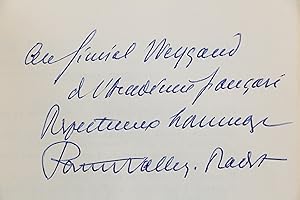 au Général Weygand
de l'Académie française
Respectueux hommage
Vallery-Radot